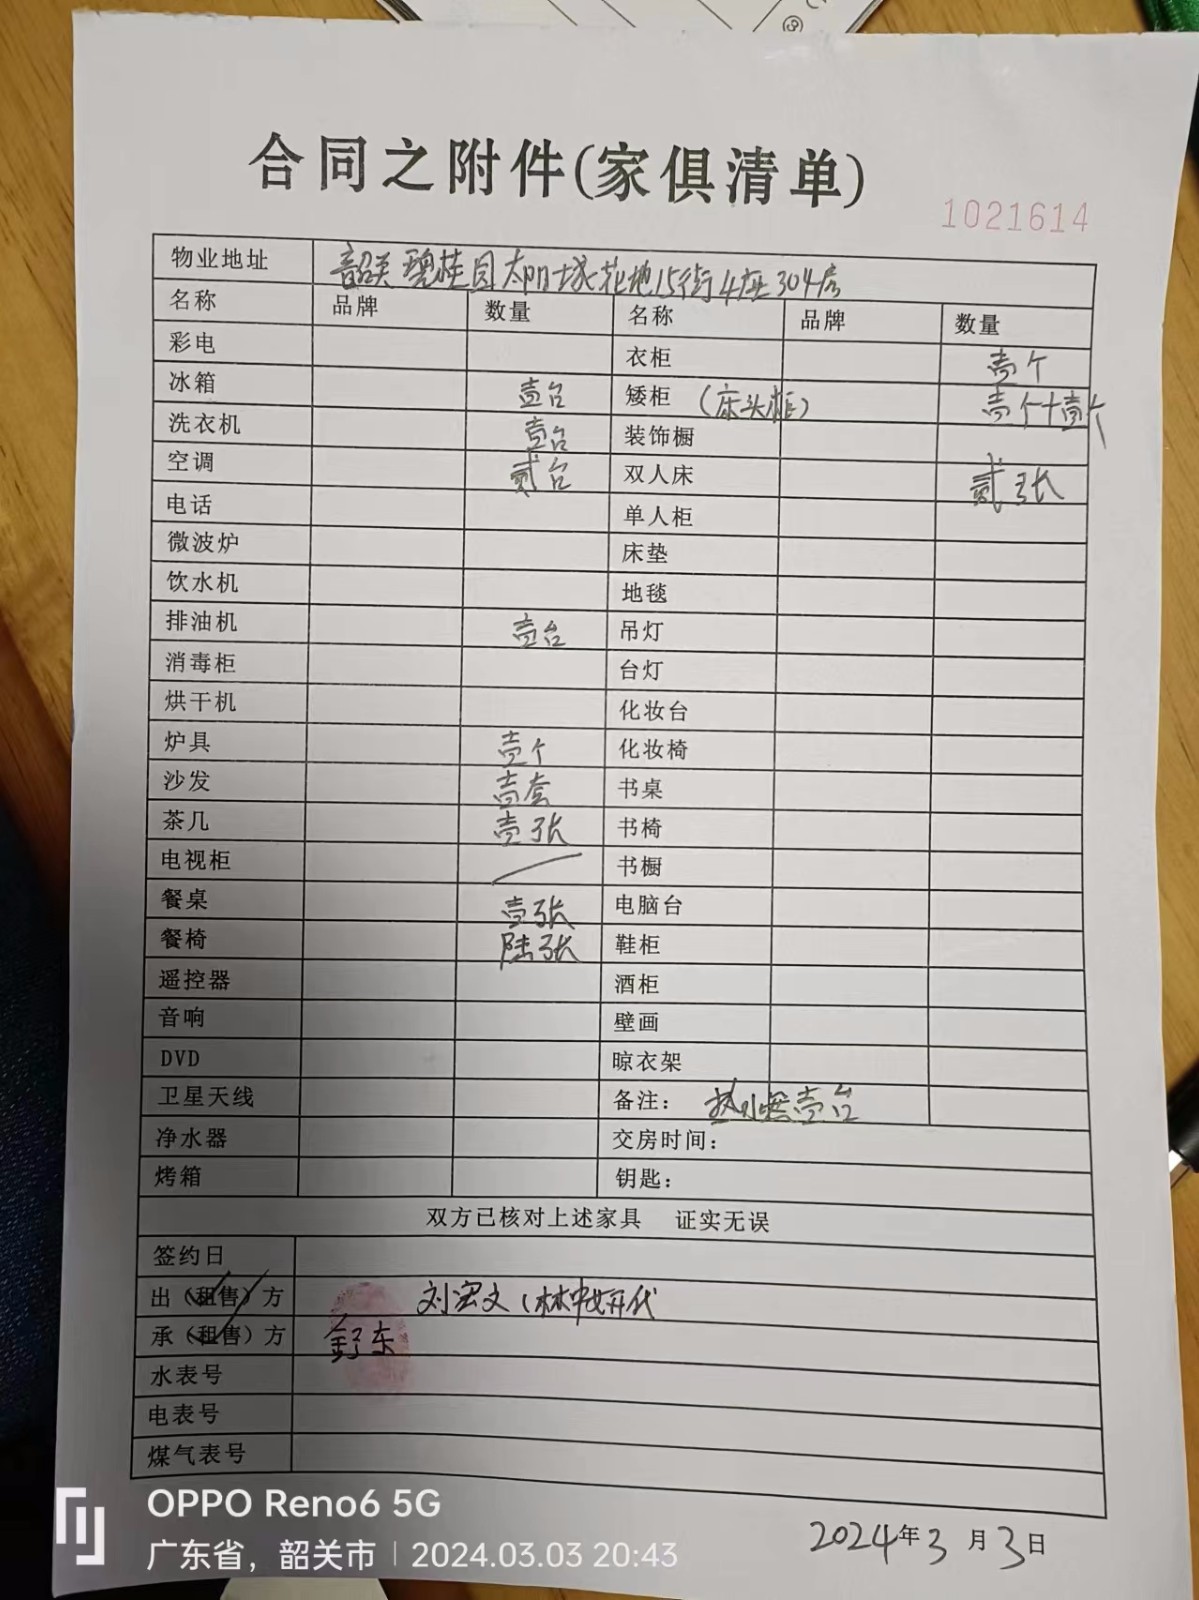 合同之附件(家俱清单)
1021614
物业地址 韶关碧桂园太阳城花地15街4座304房
名称 品牌 数量 名称 品牌 数量
彩电 衣柜 壹个
冰箱 壹台 矮柜 (床头柜) 壹个+壹个
洗衣机 壹台 装饰橱
空调 贰台 双人床 贰张
电话 单人柜
微波炉 床垫
饮水机 地毯
排油机 壹台 吊灯
消毒柜 台灯
烘干机 化妆台
炉具 壹个 化妆椅
沙发 壹套 书桌
茶几 壹张 书椅
电视柜 书橱
餐桌 壹张 电脑台
餐椅 陆张 鞋柜
遥控器 酒柜
音响 壁画
DVD 晾衣架
卫星天线 备注: 热水器壹台
净水器 交房时间:
烤箱 钥匙:
双方已核对上述家具 证实无误
签约日
出(租售)方 刘宏文(林中好代
承(租售)方 东
水表号
电表号
煤气表号
2024年3月3日
OPPO Reno6 5G
广东省，韶关市 | 2024.03.03 20:43